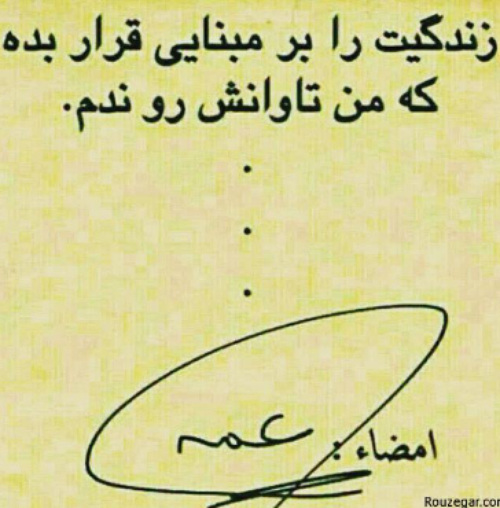 زندگیت را بر مبنایی قرار بده
که من تاوانش رو ندم.
.
.
.
امضاء : عمه
Rouzegar.com